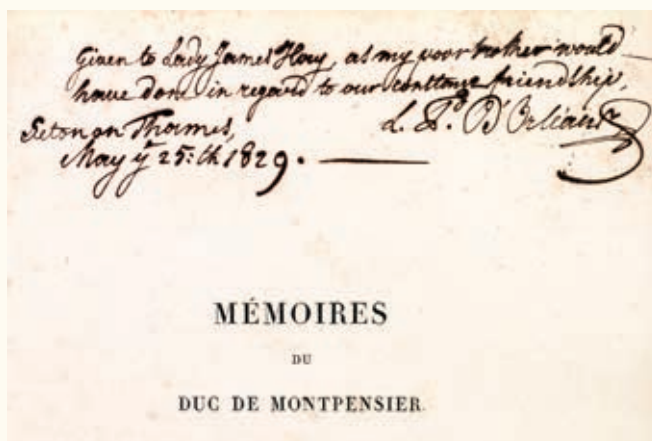 Given to Lady James Hay, as my poor brother would
have done in regard to our constant friendship,
on Thames, L. P. D'Orléans
May yͤ 25:th 1829.
MÉMOIRES
DU
DUC DE MONTPENSIER